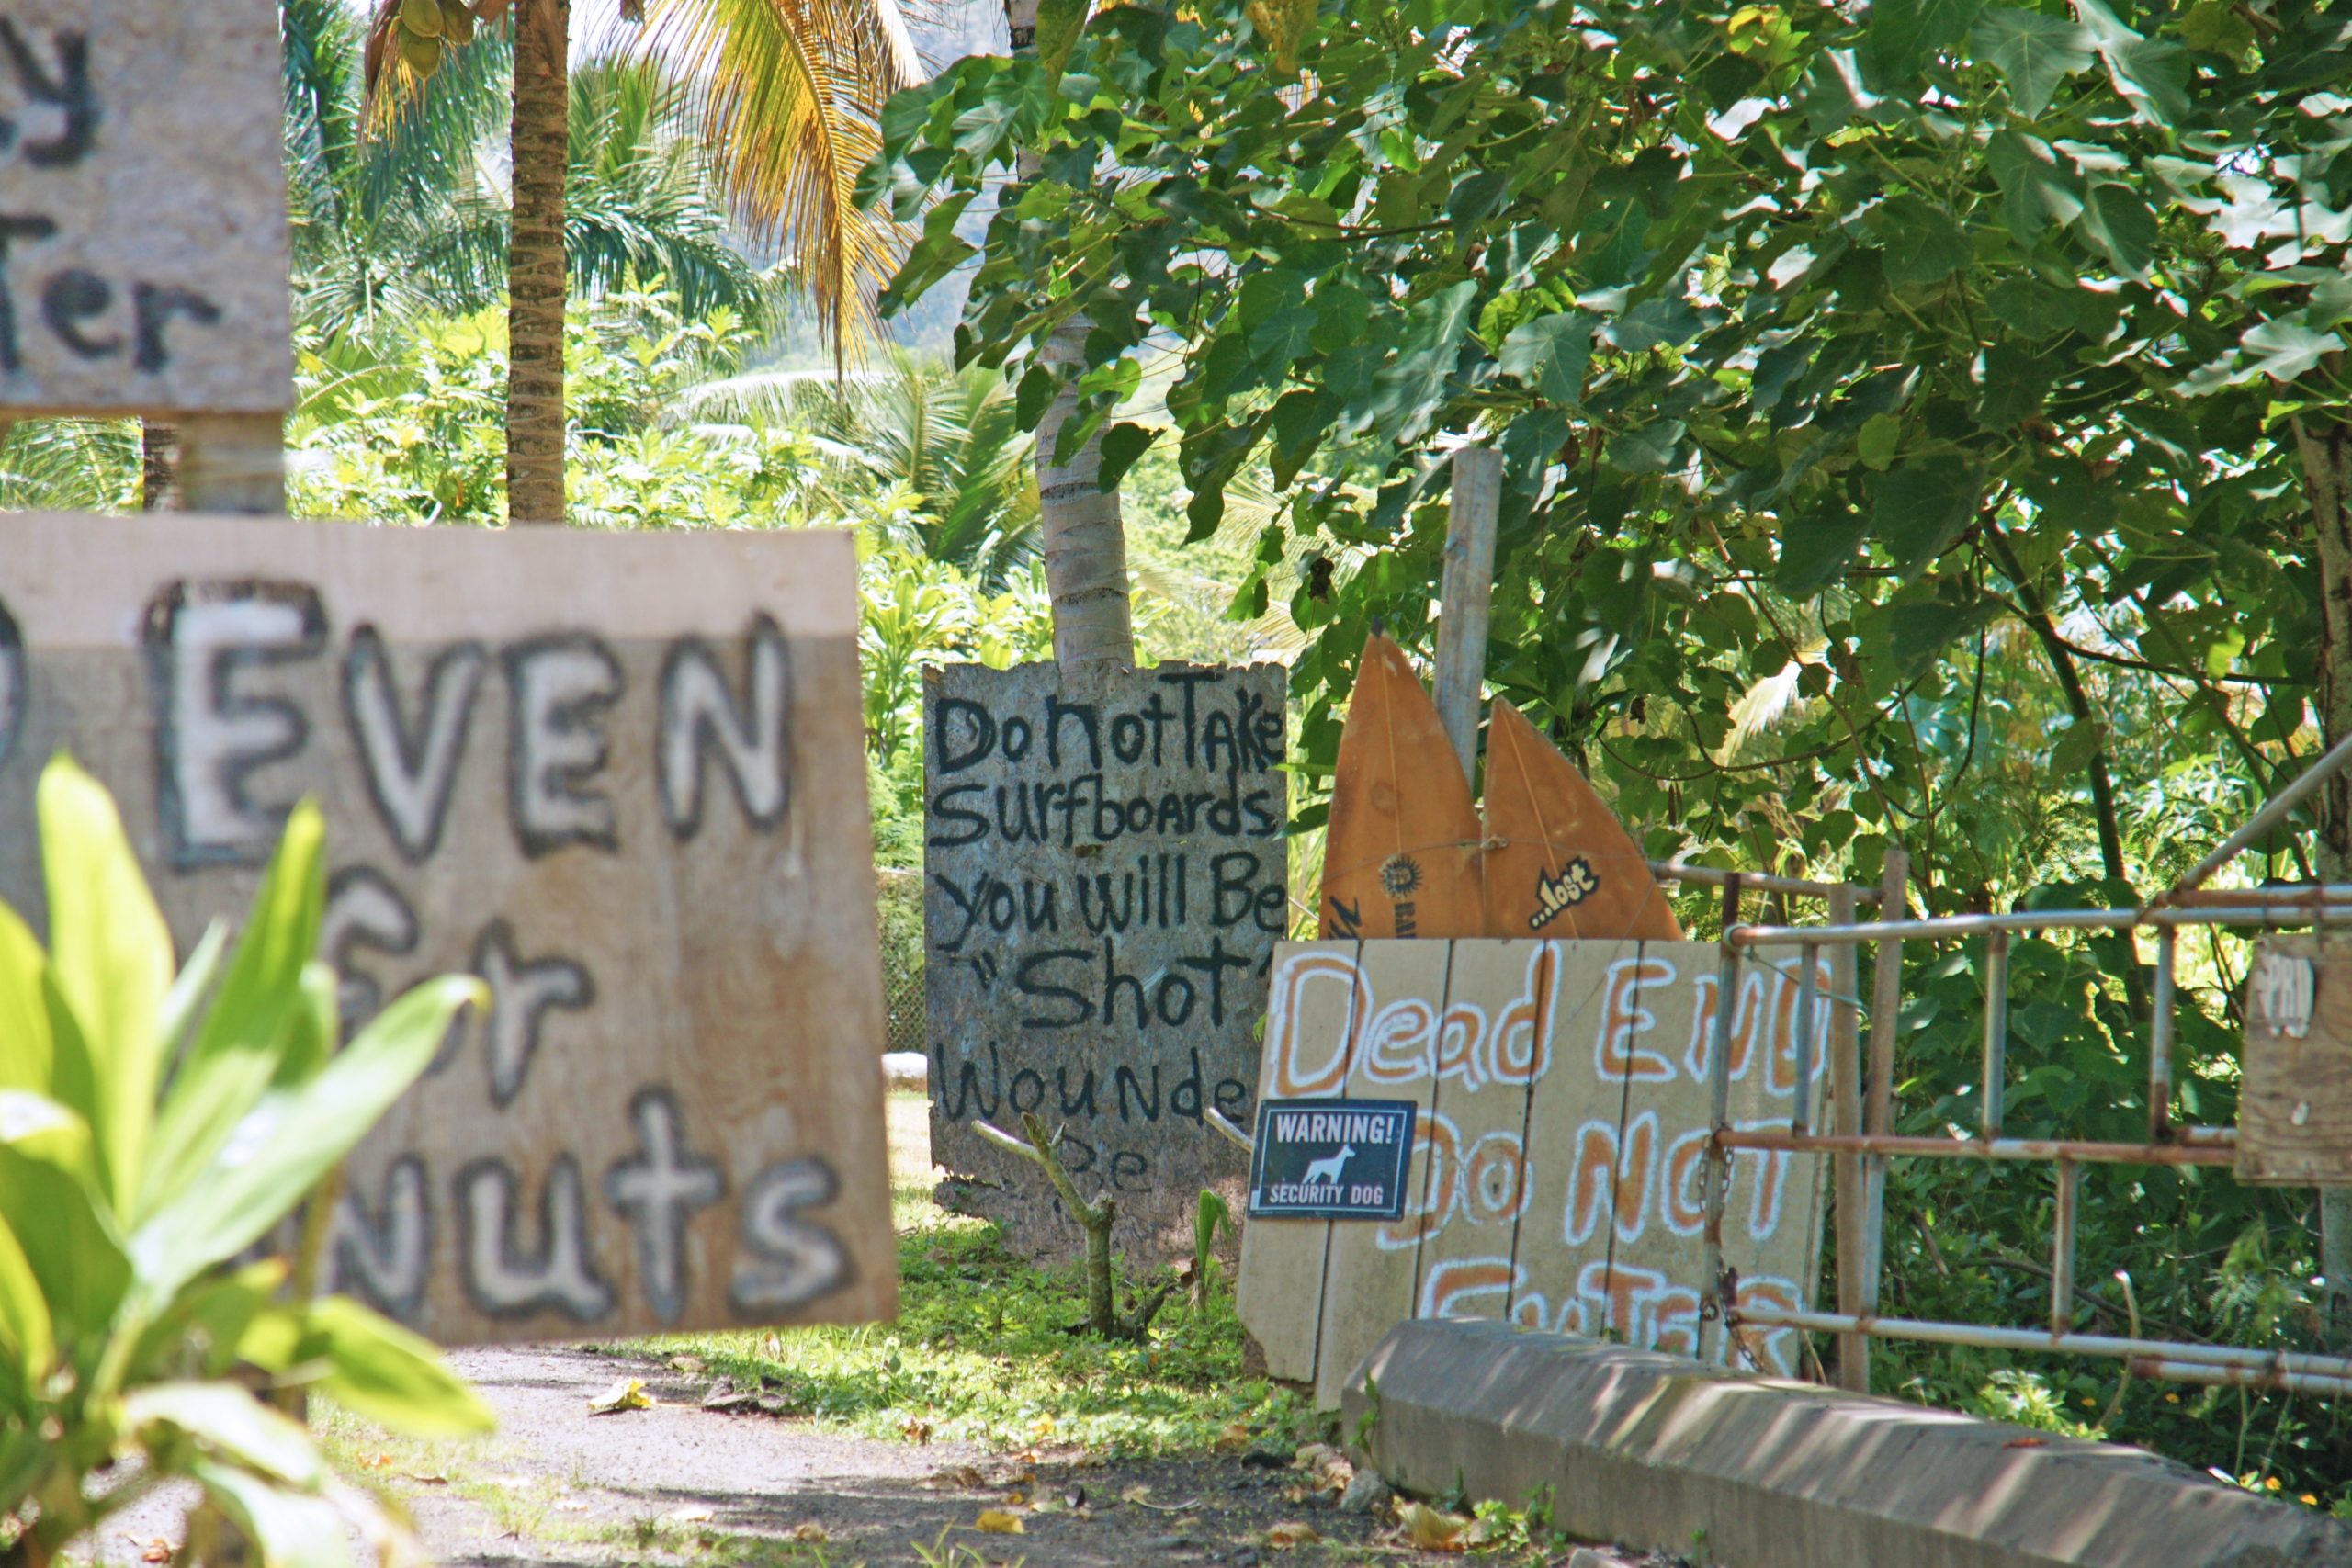 Even
for
nuts
Do not Take
Surfboards
you will Be
"Shot"
Wounde
Be
...lost
Dead END
Do NOT
ENTER
WARNING!
SECURITY DOG